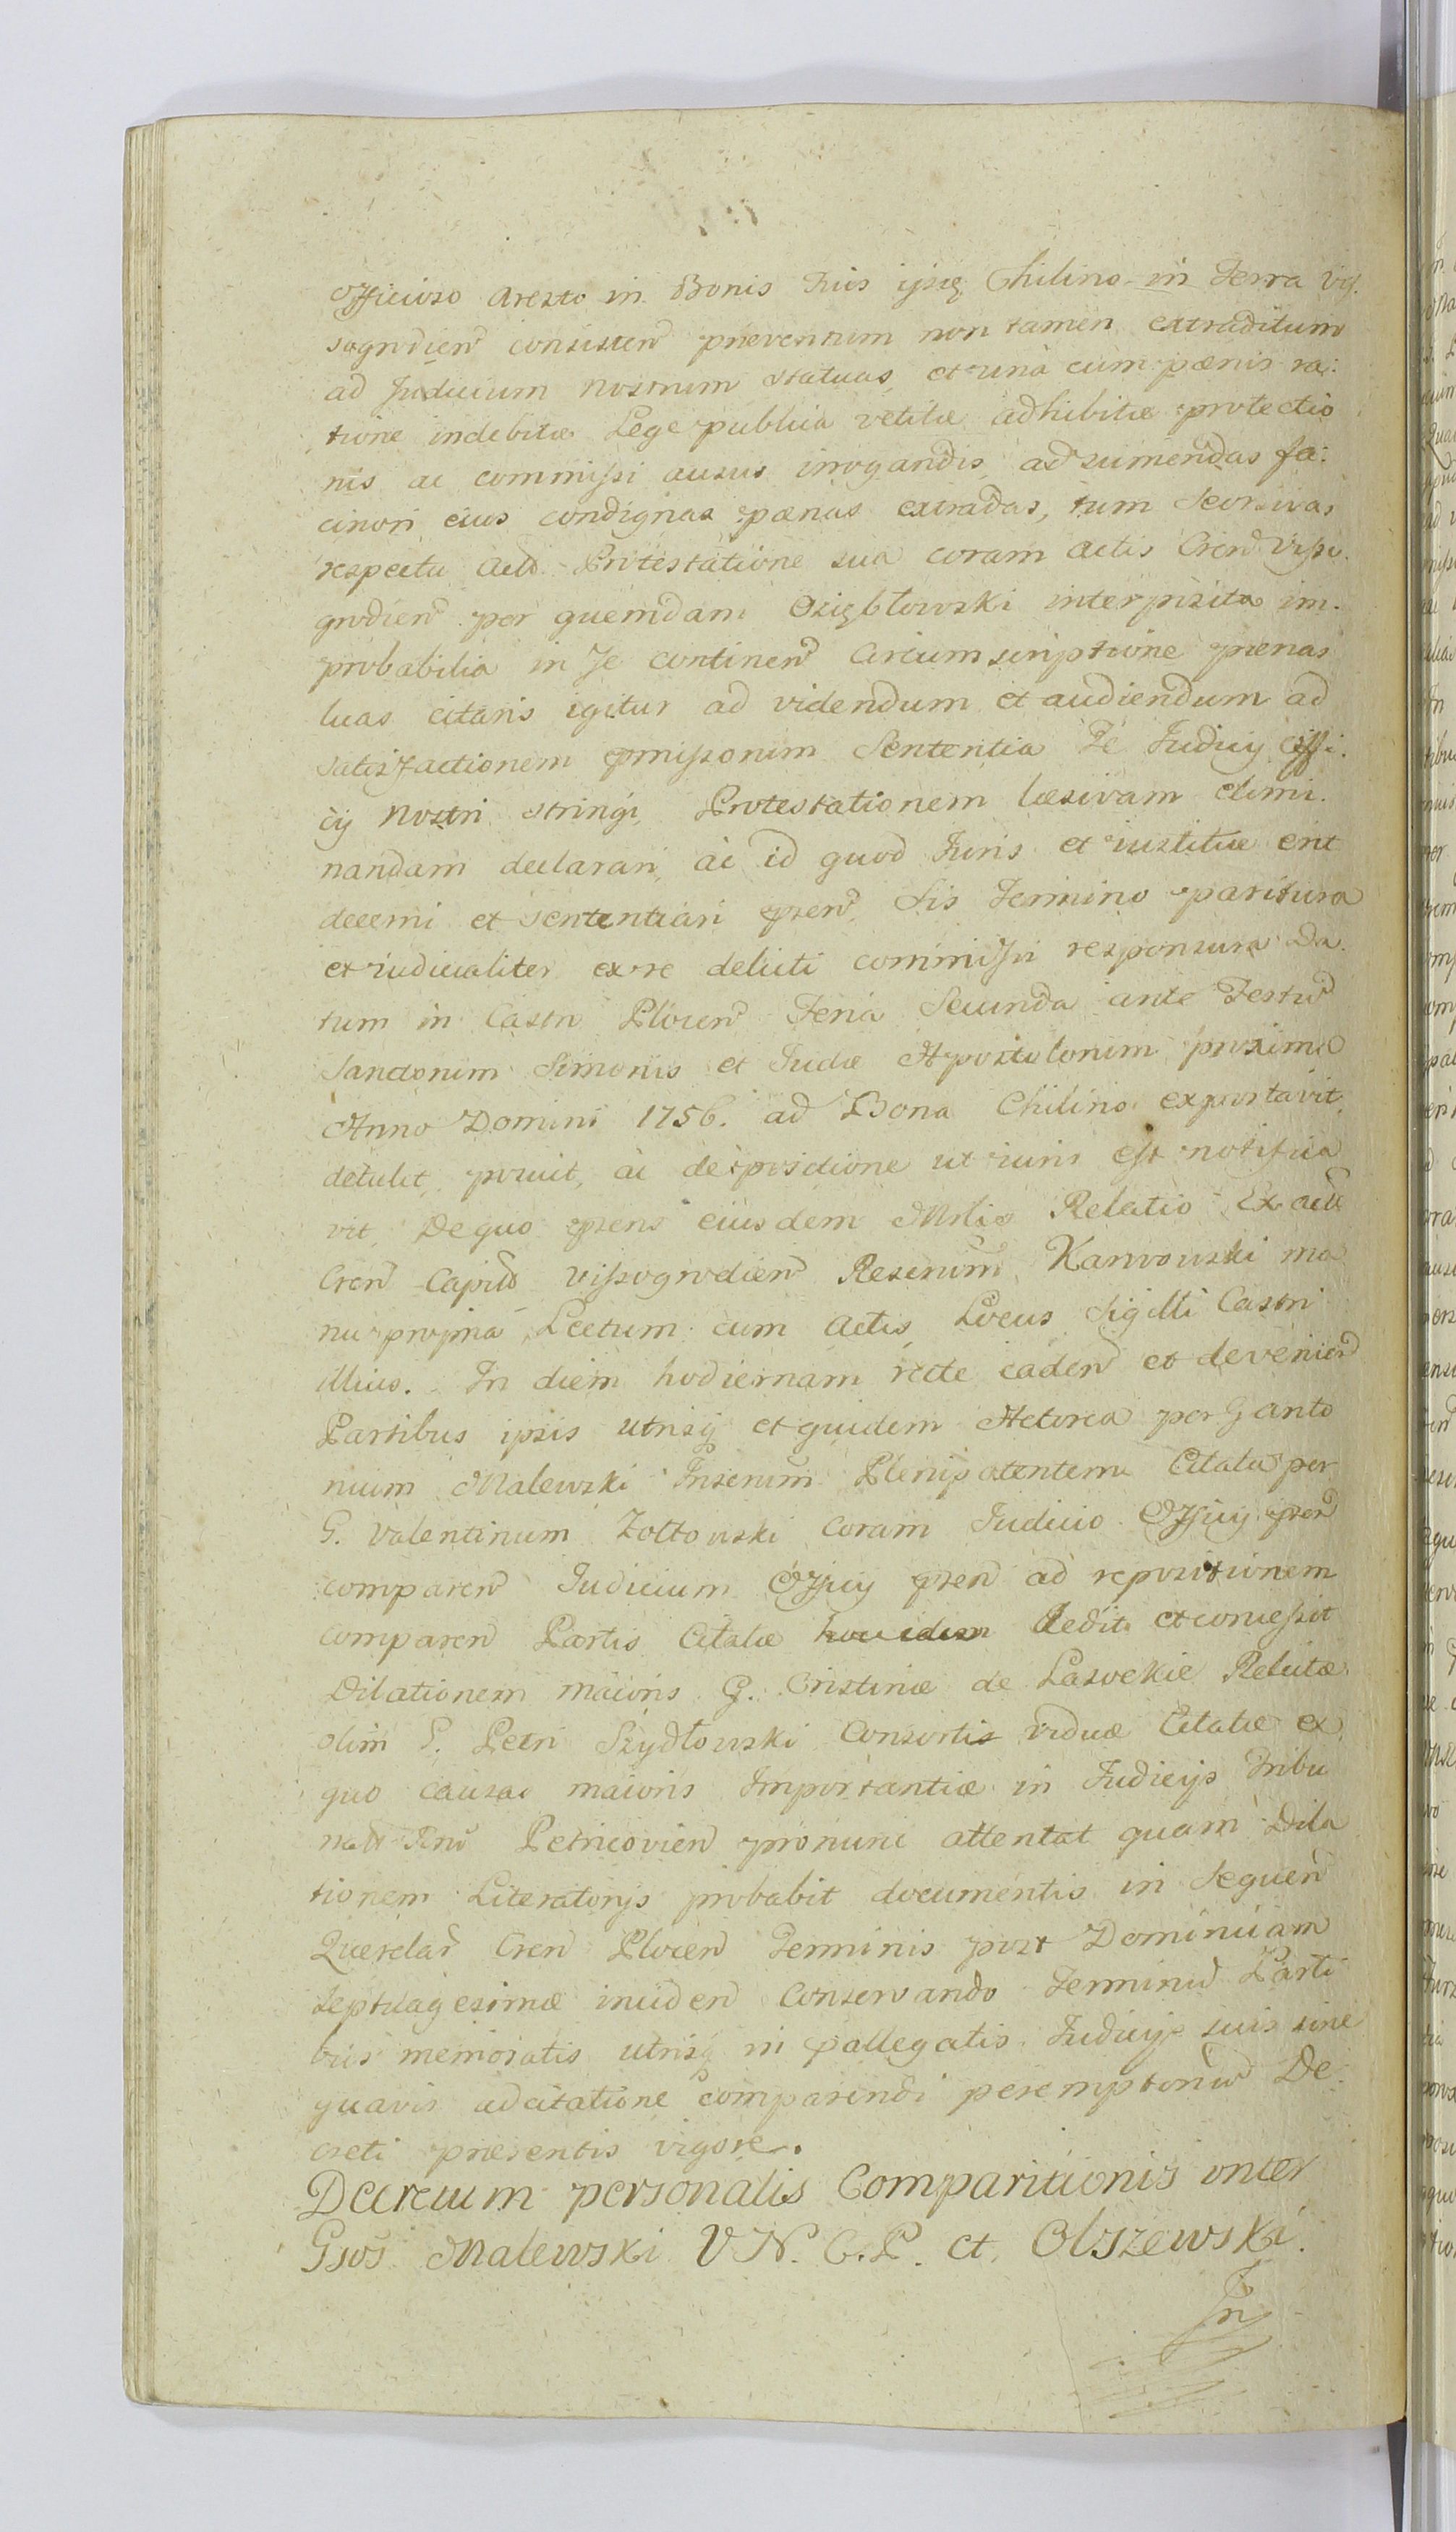 Officioso Aresto in Bonis Tuis ipsis Chilino in Terra Vis.
sogrodien consisten preventum non tamen extraditum
ad Judicium nostrum statuas, et una cum pænis ra:
tione indebitæ Lege publica vetitæ adhibitæ protectio
nis ac commissi ausus irrogandis, ad sumendas fa:
cinori eius condignas pænas extradas, tum Seorsivas
respectu Protestatione sua coram Actis Cren Visso
grodien per quemdam Osiębłowski interposita im.
probabilia in se continen Circumscriptione pænas
luas citaris igitur ad videndum et audiendum ad
satisfactionem pmissorum Sententia Te Judicij Offi.
cij Nostri stringi, Protestationem læsivam elimi.
nandam declarari, ac id quod Juris et iustitiæ erit
decerni et sententiari psen Sis Termino paritura
et iudicialiter ex re delicti commissi responsura Da.
tum in Castro Plocen Feria Secunda ante Festum
Sanctorum Simonis et Judæ Apostolorum proxima
Anno Domini 1756. ad Bona Chilino exportavit
detulit, posuit, ac de positione ut iuris est notifica
vit, De quo psens eiusdem Mrlis Relatio Ex actis
Cren Capitl Vissogrodien Rescrum Karwowski ma
nu propria Lectum cum Actis, Locus Sigilli Castri
illius. In diem hodiernam recte caden et devenien
Partibus ipsis utrisq et quidem Actorea per G Anto
nium Malewski Inscrum Plenipotentem Citata per
G. Valentinum Zołtowski coram Judicio Officij psen
comparen Judicium Officij psen ad repositionem
comparen Partis Citatæ dedit et concessit
Dilationem maioris G. Cristinæ de Lasockie Relictæ
olim G. Petri Szydłowski Consortis viduæ Citatæ ex
quo causas maioris Importantiæ in Judicijs Tribu
nalt Rni Petricovien pronunc attentat quam Dila
tionem Literatorijs probabit documentis in Sequen
Querelar Cren Plocen Terminis post Dominicam
Septuagesimæ inciden Conservando Terminum Parti
bus memoratis utrisq in pallegatis Judicijs suis sine
quavis adcitatione comparendi peremptorium De:
creti præsentis vigore.
Decretum personalis Comparitionis inter
Gsos Malewski V N. C. P. et Olszewski.
In